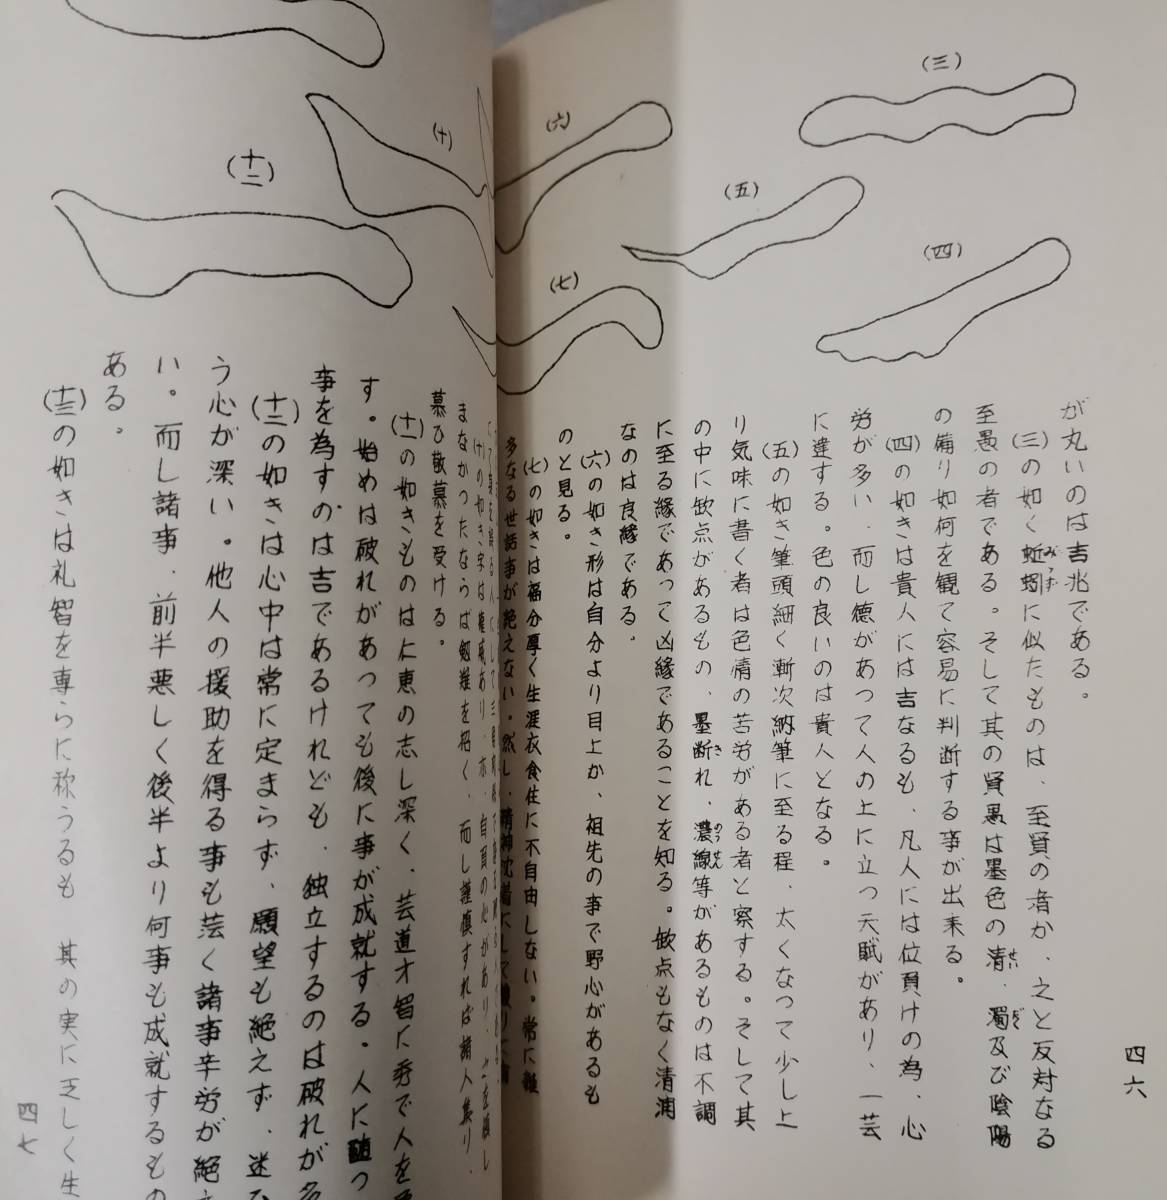 (三)
(五)
(四)
(六)
(七)
が丸いのは吉兆である。
(三)の如く蚯蚓に似たものは、至賢の者か、之と反対なる
みゝず
至愚の者である。そして其の賢愚は墨色の清、濁及び陰陽
せい
だく
の備り如何を観て容易に判断する事が出来る。
(四)の如きは貴人には吉なるも、凡人には位負けの為、心
労が多い、而し徳があって人の上に立つ天賦があり、一芸
に達する。色の良いのは貴人となる。
(五)の如き筆頭細く漸次納筆に至る程、太くなって少し上
り気味に書く者は色情の苦労がある者と察する。そして其
の中に欠点があるもの、墨断れ、濃線等があるものは不調
き
のうせん
に至る縁であって凶縁であることを知る。欠点もなく清潤
なのは良縁である。
(六)の如き形は自分より目上か、祖先の事で野心があるも
のと見る。
(七)の如きは福分厚く生涯衣食住に不自由しない。常に雑
多なる世話事が絶えない。然し、精神沈着にして
四六
(十)
(十二)
(十)の如き字は権威あり、亦、自負の心があり、
まなかったならば剱難を招く、而し謹慎すれば諸人集り、
慕ひ敬慕を受ける。
(十一)の如きものは仁恵の志し深く、芸道才智に秀で人を
す。始めは破れがあっても後に事が成就する。人に随っ
事を為すのは吉であるけれども、独立するのは破れが多
(十二)の如きは心中は常に定まらず、願望も絶えず、迷ひ
う心が深い。他人の援助を得る事も芸く諸事辛労が絶え
い。而し諸事、前半悪しく後半より何事も成就するもの
ある。
(十三)の如きは礼智を専らに称うるも 其の実に乏しく生
四七